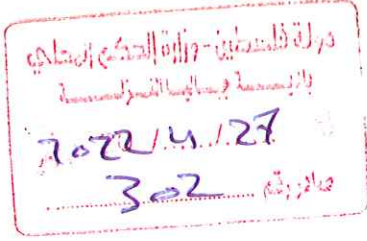 دولة فلسطين - وزارة الحكم المحلي
2022/4/27
صادر رقم 302